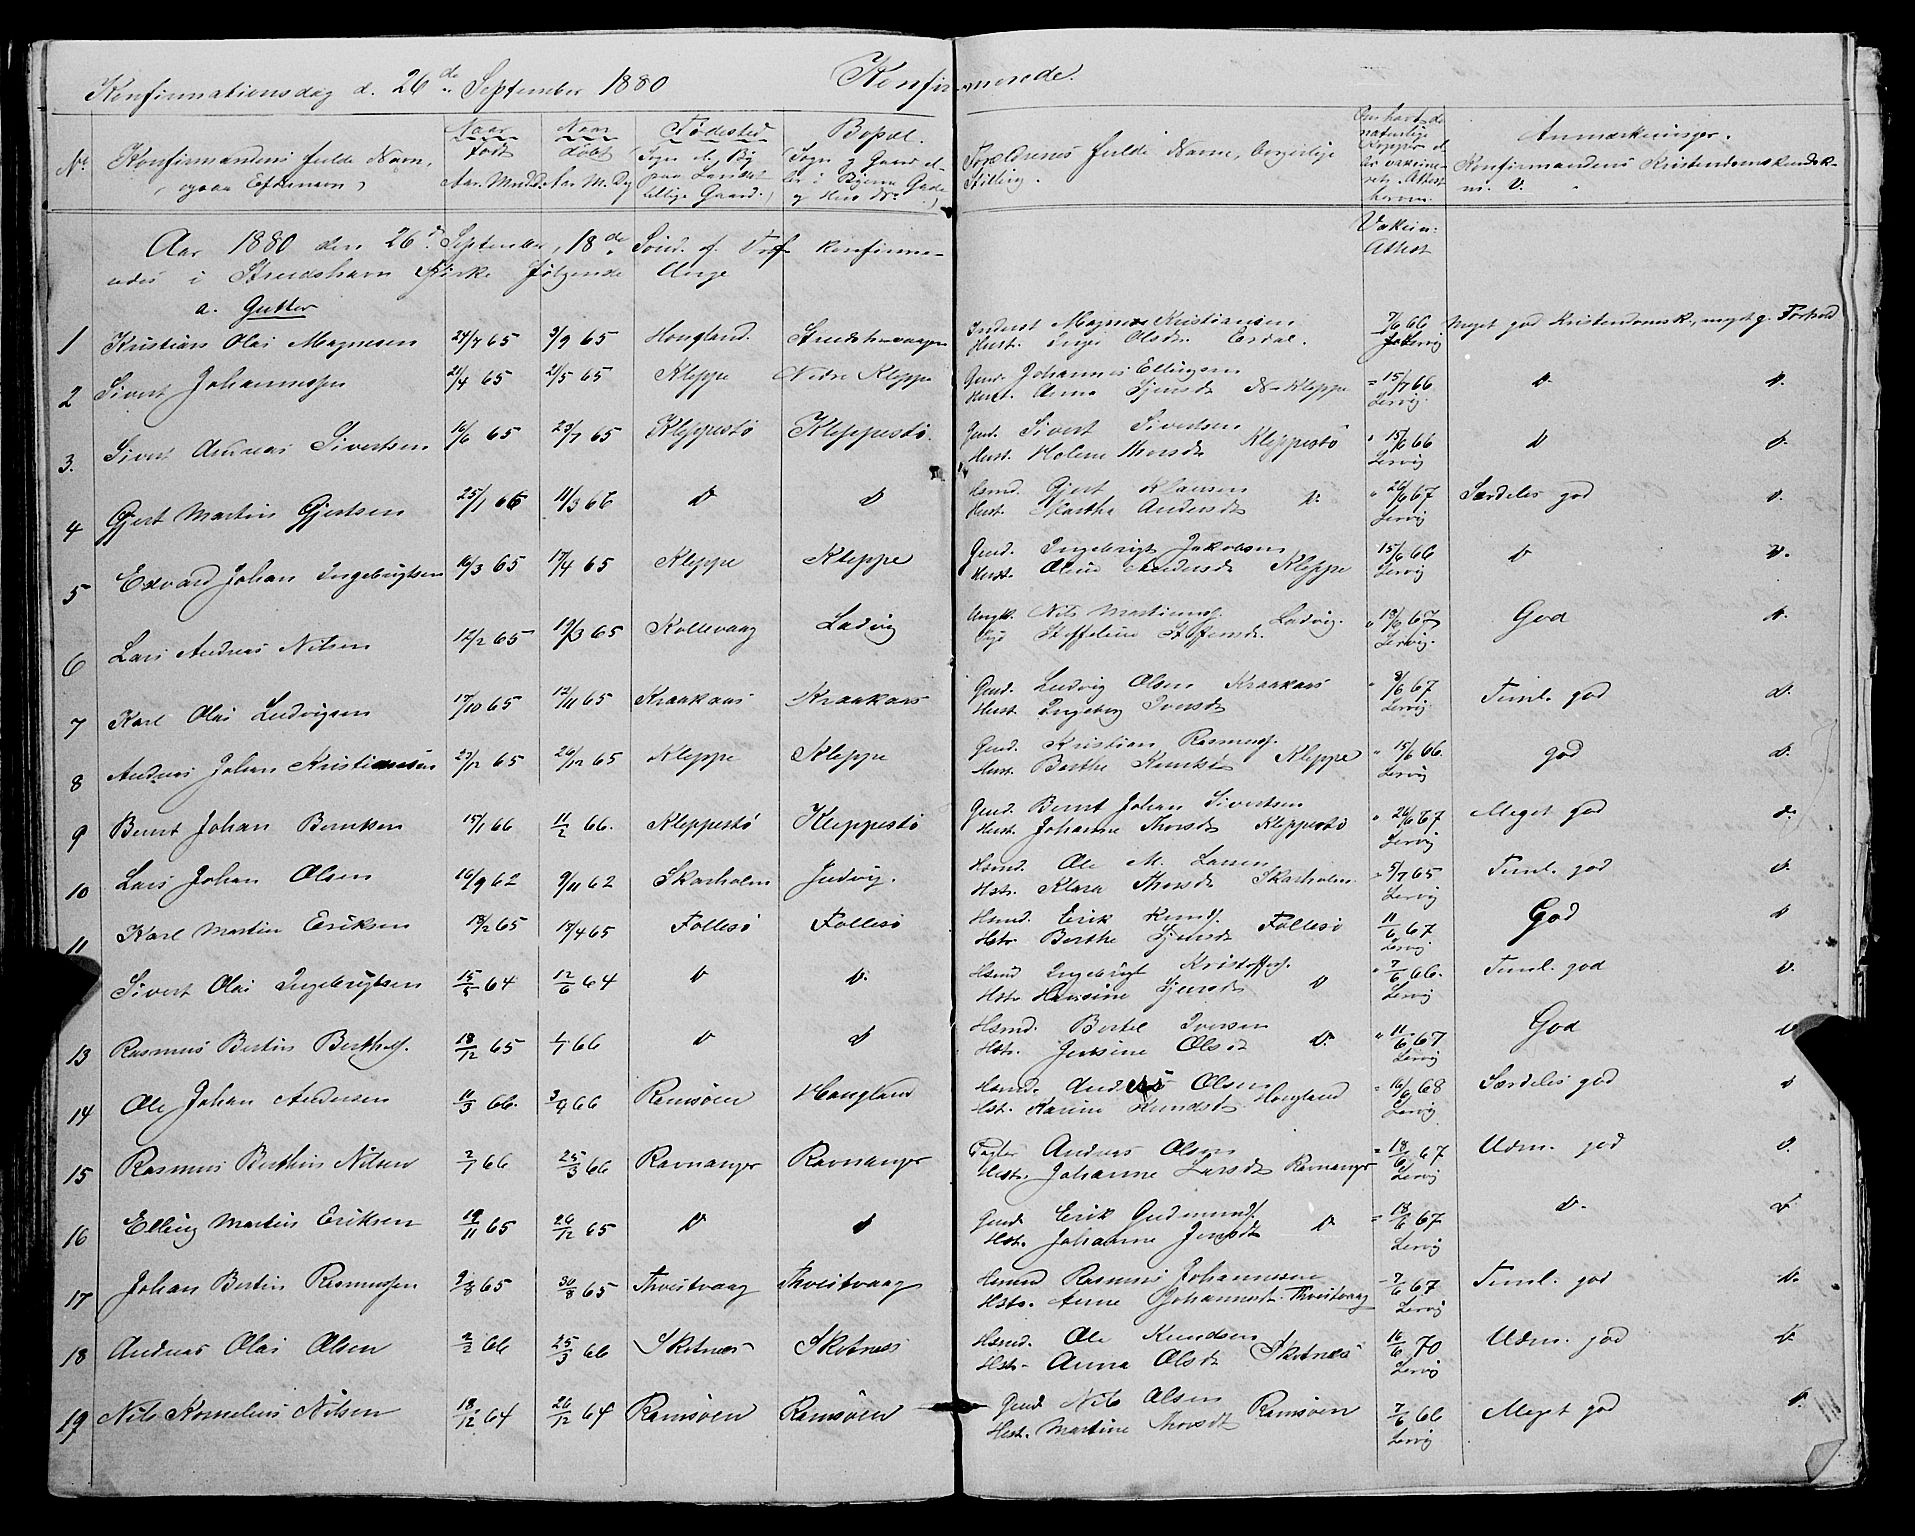 Konfirmationsdag d. 26de September 1880 Konfirmerede.
No. Konfirmandens fulde Navn, (ogsaa Efternavn) Naar født Aar. Maaned. Naar døbt Aar. M. Dg Fødested (Sogn el. By paa Landet tillige Gaard.) Bopæl. (Sogn og Gaard eller i Byerne Gade og Hus No.) Forældrenes fulde Navne, borgerlige Stilling. Anmærkninger. Konfirmandens Kristendomskundsk-
Aar 1880 den 26de September, 18de Sønd. ef. Tref. konfirme-
redes i Strudshavn Kirke følgende Unge
Vakcin: Attest
a. Gutter
1 Kristian Olai Magnesen 24/7 65 3/9 65 Hougland. Strudshavnaagen Inderst Magnus Kristiansen Hust. Inger Olsdr. Erdal. 7/6 66 Lervig Meget god Kristendomsk., meget g. Forhold
2 Sivert Johannessen 21/4 65 21/5 65 Kleppe Nedre Kleppe Gmd. Johannes Ellingsen Hust. Anna Gjensdr N-Kleppe " 15/7 66 Lervig. d. d.
3. Sivert Andreas Sivertsen 16/6 65 23/7 65 Kleppestø Kleppestø. Gmd. Sivert Sivertsen Hust. Helene Thorsdr Kleppestø " 15/6 66 Lervig d d.
4 Gjert Martin Gjertsen 25/1 66 11/3 66 d d Hsmd. Gjert Hansen Hust. Martha Andersdr d: " 26/6 67 Lervig Særdeles god d.
5 Edvard Johan Ingebrigtsen 16/3 65 17/4 65 Kleppe Kleppe Gmd. Ingebrigt Jakobsen Hust. Oline Andersdr Kleppe 15/6 66 Lervig d d.
6 Lars Andreas Nilsen 12/2 65 19/3 65 Kollevaag Ladvig Ungk. Nils Martinus. Pige Stoffeline Steffensdr. Ladvig. " 18/6 67 Lervig. God d.
7 Karl Olai Ludvigsen 17/10 65 12/11 65 Kraakaas Kraakaas Gmd. Ludvig Olsen Kraakaas Hust. Ingeborg Iversdr " 8/6 67 Lervig Teml. god d.
8 Andreas Johan Kristiansen 23/12 65 26/12 65 Kleppe Kleppe Gmd. Kristian Rasmuss. Hust. Berthe Knutsdr Kleppe " 15/6 66. Lervig god d.
9 Bernt Johan Berntsen 15/1 66 11/2 66. Kleppestø Kleppestø Gmd. Bernt Johan Sivertsen Hust. Johanne Thorsdr Kleppestø " 26/6 67 Lervig Meget god d.
10 Lars Johan Olsen 16/9 62 9/11 62 Skarholm Judvig. Hsmd. Ole M. Larsen Hst. Klara Thorsdr Skarholm. " 5/7 65 Lervig Teml. god d.
11 Karl Martin Eriksen 18/2 65 17/4 65 Follesø Follesø Hsmd. Erik Knuds. Hst. Berthe Gjensdr Follesø 11/6 67 Lervig God d
Sivert Olai Ingebrigtsen 15/5 64 12/6 64 d d. Hsmd Ingebrigt Kristoffers. Hst. Hansine Gjensdr d " 7/6 66. Lervig Teml. god d.
13 Rasmus Bertin Berthels. 18/12 65 1/1 66 d d Hsmd. Bertel Iversen Hst. Jensine Olsdr d. " 11/6 67 Lervig God d
14 Ole Johan Andersen 11/3 66. 3/4 66 Ramsøen Hougland Hsmd. Anders Olsen Hst. Karine Knudsdr. Hougland " 16/6 68 Lervig Særdeles god d
15 Rasmus Berthin Nilsen 2/1 66 25/3 66 Ravnanger Ravnanger Andreas Olsen Hst. Johanne Larsdr Ravnanger " 18/6 67 Lervig Udm. god d.
16 Elling Martin Eriksen 19/11 65 26/12 65 d d Gmd. Erik Gudmunds. Hst. Johanne Jensdr d. " 18/6 67 Lervig d. d
17 Johan Bertin Rasmussen 9/8 65 30/8 65 Thveitvaag Thveitvaag Hsmd Rasmus Johannesen Hst. Anne Johannesdr. Thveitvaag " 7/6 67 Lervig Teml. god d.
18 Andreas Olai Olsen 2/2 66 25/3 66 Skitnes Skitnes Hsmd. Ole Knudsen Hst. Anna Olsdr Skitnes 16/6 70 Lervig Udm. god d.
19 Nils Kornelius Nilsen 18/12 64 26/12 64 Ramsøen Ramsøen Gmd Nils Olsen Hst. Martine Thorsdr Ramsøen 7/6 66 Lervig Meget god d.